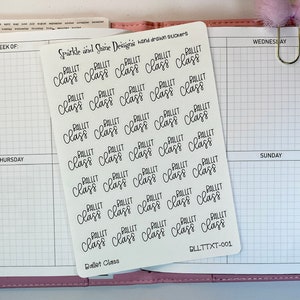 WEEK OF:
WEDNESDAY
THURSDAY
SUNDAY
Sparkle and Shine Designs hand drawn stickers
BALLET BALLET BALLET BALLET BALLET
class class class class class
BALLET BALLET BALLET BALLET BALLET
class class class class class
BALLET BALLET BALLET BALLET BALLET
class class class class class
BALLET BALLET BALLET BALLET BALLET
class class class class class
BALLET BALLET BALLET BALLET BALLET
class class class class class
BALLET BALLET BALLET BALLET BALLET
class class class class class
BALLET BALLET BALLET BALLET BALLET
class class class class class
Ballet Class
BLLTTXT-001